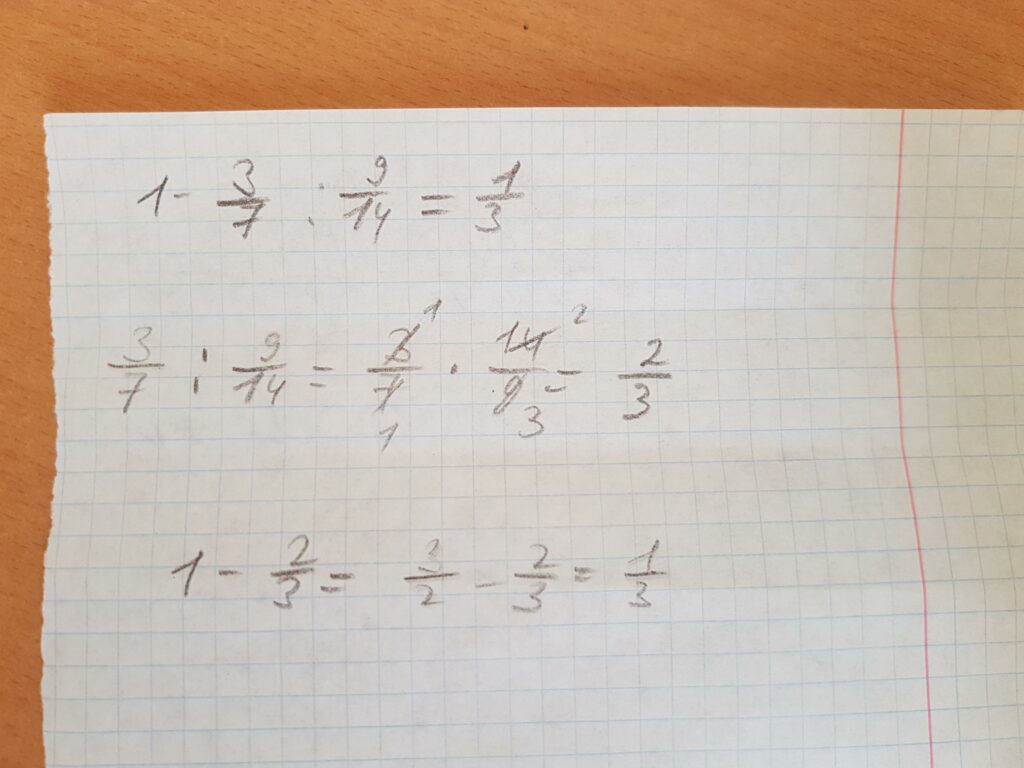 1 - 3/7 : 9/14 = 1/3
3/7 : 9/14 = 3̶ 1/7̶ 1 · 1̶4̶ 2/9̶ 3 = 2/3
1 - 2/3 = 3/2 - 2/3 = 1/3